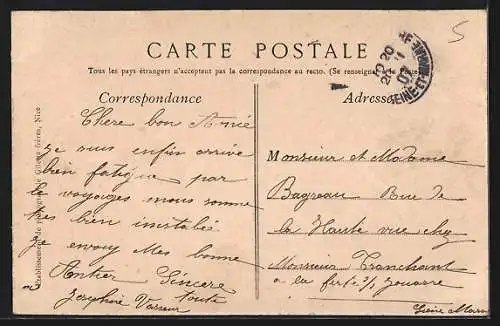 5
CARTE POSTALE
Tous les pays étrangers n'acceptent pas la correspondance au recto. (Se renseigner à la Poste)
Correspondance
Adresse
Etablissements de photographie Giletta frères, Nice
Chere bon Amie
Je suis enfin arrive
bien fatigue par
le voyages nous somme
tres bien instalié
Je envoy Mes bonne
Sincere
Josephine toute
Monsieur et Madame
Bagreau Rue de
la Haute vue chez
Monsieur Tranchant
a la ferte s/ Jouarre
Seine Marn